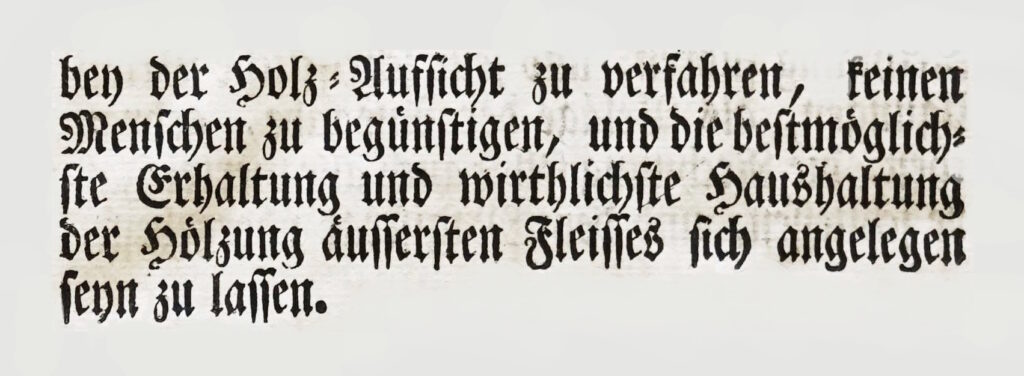 bey der Holz-Aufsicht zu verfahren, keinen
Menschen zu begünstigen, und die bestmöglich-
ste Erhaltung und wirthlichste Haushaltung
der Hölzung äussersten Fleisses sich angelegen
seyn zu lassen.